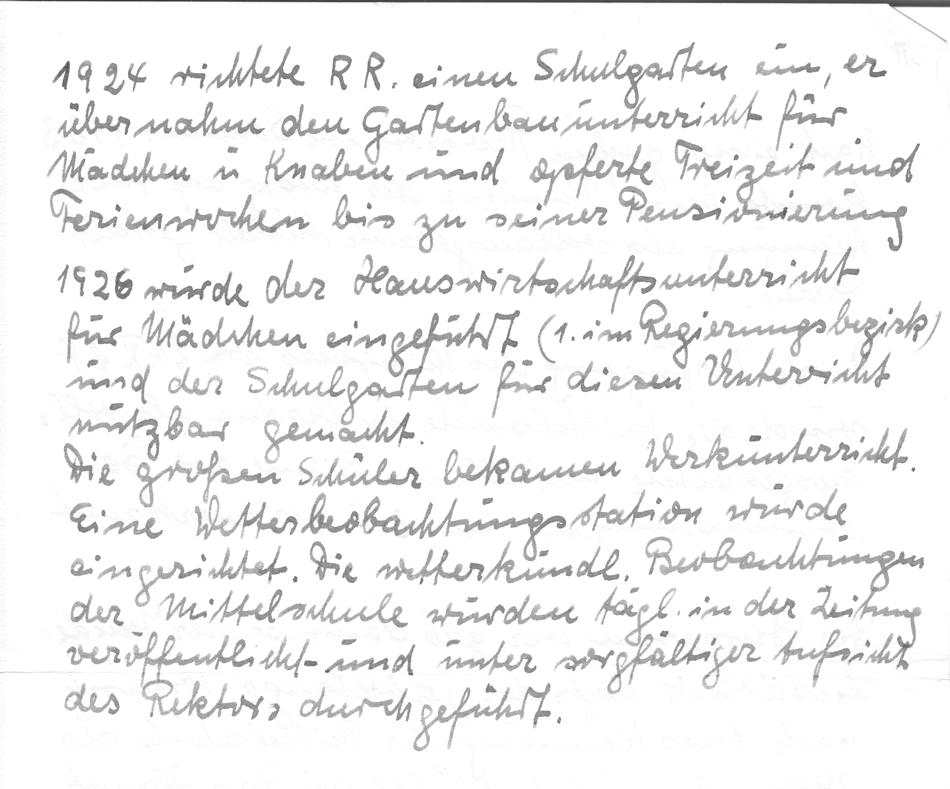 1924 richtete RR. einen Schulgarten ein, er
übernahm den Gartenbauunterricht für
Mädchen u Knaben und opferte Freizeit und
Ferienwochen bis zu seiner Pensionierung
1926 wurde der Hauswirtschaftsunterricht
für Mädchen eingeführt (1. im Regierungsbezirk)
und der Schulgarten für diesen Unterricht
nutzbar gemacht.
Die großen Schüler bekamen Werkunterricht.
Eine Wetterbeobachtungsstation wurde
eingerichtet. Die wetterkundl. Beobachtungen
der Mittelschule wurden tägl. in der Zeitung
veröffentlicht - und unter sorgfältiger Aufsicht
des Rektors durchgeführt.